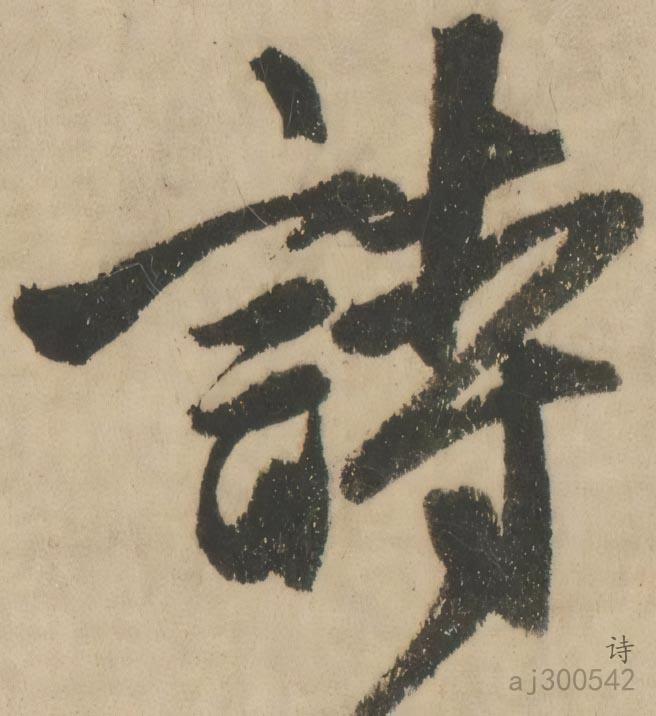 詩
诗
aj300542